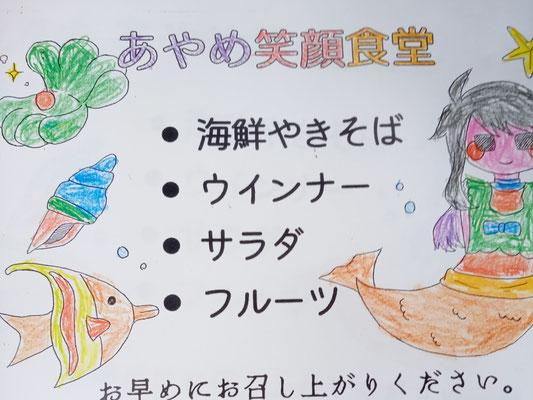 あやめ笑顔食堂
● 海鮮やきそば
● ウインナー
● サラダ
● フルーツ
お早めにお召し上がりください。